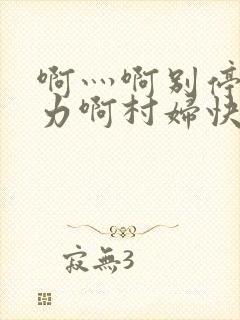 啊灬啊别停
力啊村妇快
寂無3